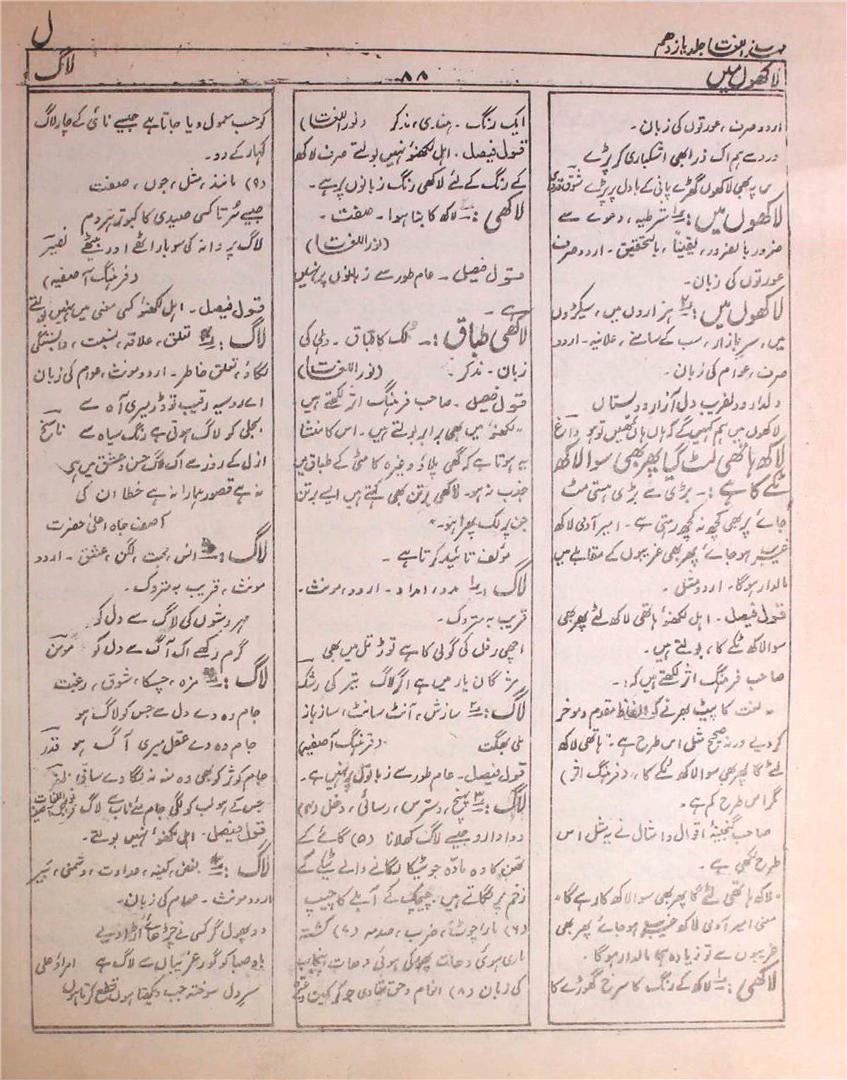 ل
مہذب اللغات جلد یازدھم
لاکھوں میں
۸۸
لاگ
اردو صرف، عورتوں کی زبان۔
درد سے ہم اک ذرا بھی اشکباری کر پڑے
بس یہ بھی لاکھوں گھڑے پانی کے بادل پر پڑے شوق قدوائی
لاکھوں میں :۔ شرطیہ، دعوے سے
ضرور بالضرور، یقیناً، بالتحقیق۔ اردو صرف
عورتوں کی زبان۔
لاکھوں میں :۔ ہزاروں میں، سیکڑوں
میں، سر بازار، سب کے سامنے، علانیہ۔ اردو
صرف، عوام کی زبان۔
دلدار و دلفریب دل آزار و دلستاں
لاکھوں میں ہم کہیں گے کہ ہاں ہاں تمہیں تو ہو داغ
لاکھ ہاتھی لٹ گیا پھر بھی سوا لاکھ
ٹکے کا ہے :۔ بڑی سے بڑی ہستی مٹ
جائے پر بھی کچھ نہ کچھ رہتی ہے۔ امیر آدمی لاکھ
غریب ہو جائے پھر بھی غریبوں کے مقابلے میں
مالدار ہوگا۔ اردو مثل۔
قول فیصل۔ اہل لکھنؤ ہاتھی لاکھ لٹے پھر بھی
سوا لاکھ ٹکے کا، بولتے ہیں۔
صاحب فرہنگ اثر لکھتے ہیں کہ :۔
"لغت کا پیٹ بھرنے کو الفاظ مقدم و موخر
کر دیے ورنہ صحیح مثل اس طرح ہے۔ "ہاتھی لاکھ
لٹے گا پھر بھی سوا لاکھ ٹکے کا" (فرہنگ اثر)
مگر اس طرح کم ہے۔
صاحب گنجینۂ اقوال و امثال نے یہ مثل اس
طرح لکھی ہے۔
"لاکھ ہاتھی لٹے گا پھر بھی سوا لاکھ کا رہے گا"
معنی امیر آدمی لاکھ غریب ہو جائے پھر بھی
غریبوں سے تو زیادہ ہی مالدار ہوگا۔
لاکھی :۔ لاکھ کے رنگ کا سرخ گھوڑے کا
ایک رنگ۔ ہندی، مذکر (نور اللغات)
قول فیصل۔ اہل لکھنؤ نہیں بولتے صرف لاکھ
کے رنگ کے لئے لاکھی رنگ زبانوں پر ہے۔
لاکھی :۔ لاکھ کا بنا ہوا۔ صفت۔
(نور اللغات)
قول فیصل۔ عام طور سے زبانوں پر نہیں
ہے۔
لاکھی طباق :۔ لک کا طباق۔ دہلی کی
زبان۔ مذکر۔ (نور اللغات)
قول فیصل۔ صاحب فرہنگ اثر لکھتے ہیں
"لکھنؤ میں بھی برابر بولتے ہیں۔ اس کا منشا
یہ ہوتا ہے کہ گھی پلاؤ وغیرہ کا مٹی کے طباق میں
جذب نہ ہو۔ لاکھی برتن بھی کہتے ہیں ایسے برتن
جن پر لک پھرا ہو۔"
مؤلف تائید کرتا ہے۔
لاگ :۔ مدد، امداد۔ اردو، مونث۔
قریب بہ متروک۔
اچھی رفل کی گولی کا ہے توڑ تل میں بھی
مژگان یار میں ہے اگر لاگ تیر کی رشک
لاگ :۔ سازش، آنٹ سانٹ، ساز باز
ملی بھگت (فرہنگ آصفیہ)
قول فیصل۔ عام طور سے زبانوں پر نہیں ہے۔
لاگ :۔ پہنچ، دسترس، رسائی، دخل (۴)
دوا دارو جیسے لاگ کھلانا (۵) گائے کے
تھن کا وہ مادہ جو ٹیکا لگانے والے ٹیکے کے
زخم پر لگاتے ہیں۔ چیچک کے آبلے کا چیپ
(۶) مار، چوٹ، ضرب، صدمہ (۷) کشتہ
ماری ہوئی دھات پھونکی ہوئی دھات پنجاب
کی زبان (۸) انعام و حق تقاوی جو کہ کمین وغیرہ
کو حسب معمول دیا جاتا ہے جیسے نائی کے چار لاگ
کہار کے دو۔
(۹) مانند، مثل، جوں، صفت
جیسے سُرتا کسی صیدی کا کبوتر ہر دم
لاگ پروانہ کی سو بار اٹھے اور بیٹھے نصیر
(فرہنگ آصفیہ)
قول فیصل۔ اہل لکھنؤ کسی معنی میں نہیں بولتے
لاگ :۔ تعلق، علاقہ، نسبت، وابستگی
لگاؤ، تعلق خاطر۔ اردو مونث، عوام کی زبان
اے رو سیہ رقیب تو ڈر میری آہ سے
بجلی کو لاگ ہوتی ہے رنگ سیاہ سے ناسخ
ازل کے روز سے اک لاگ حسن و عشق میں ہے
نہ ہے قصور ہمارا نہ ہے خطا ان کی
آصف جاہ اعلیٰ حضرت
لاگ :۔ انس، محبت، لگن، عشق۔ اردو
مونث، قریب بہ متروک۔
مہر وشوں کی لاگ سے دل کو
گرم رکھے اک آگ سے دل کو مومن
لاگ :۔ مزہ، چسکا، شوق، رغبت
جام وہ دے دل سے جس کو لاگ ہو
جام وہ دے عقل میری آگ ہو قدر
جام کوثر کو بھی وہ منہ نہ لگا دے ساقی
جس کے ہو لب کو لگی جام مئے ناب سے لاگ
قول فیصل۔ اہل لکھنؤ نہیں بولتے۔
لاگ :۔ بغض، کینہ، عداوت، دشمنی، بیر
اردو مونث۔ عوام کی زبان۔
دو پھول گر کسی نے چڑھائے اڑا دیے
باد صبا کو گور غریباں سے لاگ ہے امراؤ علی
سر دل سوختہ جب دیکھتا ہوں قطع کرتا ہوں